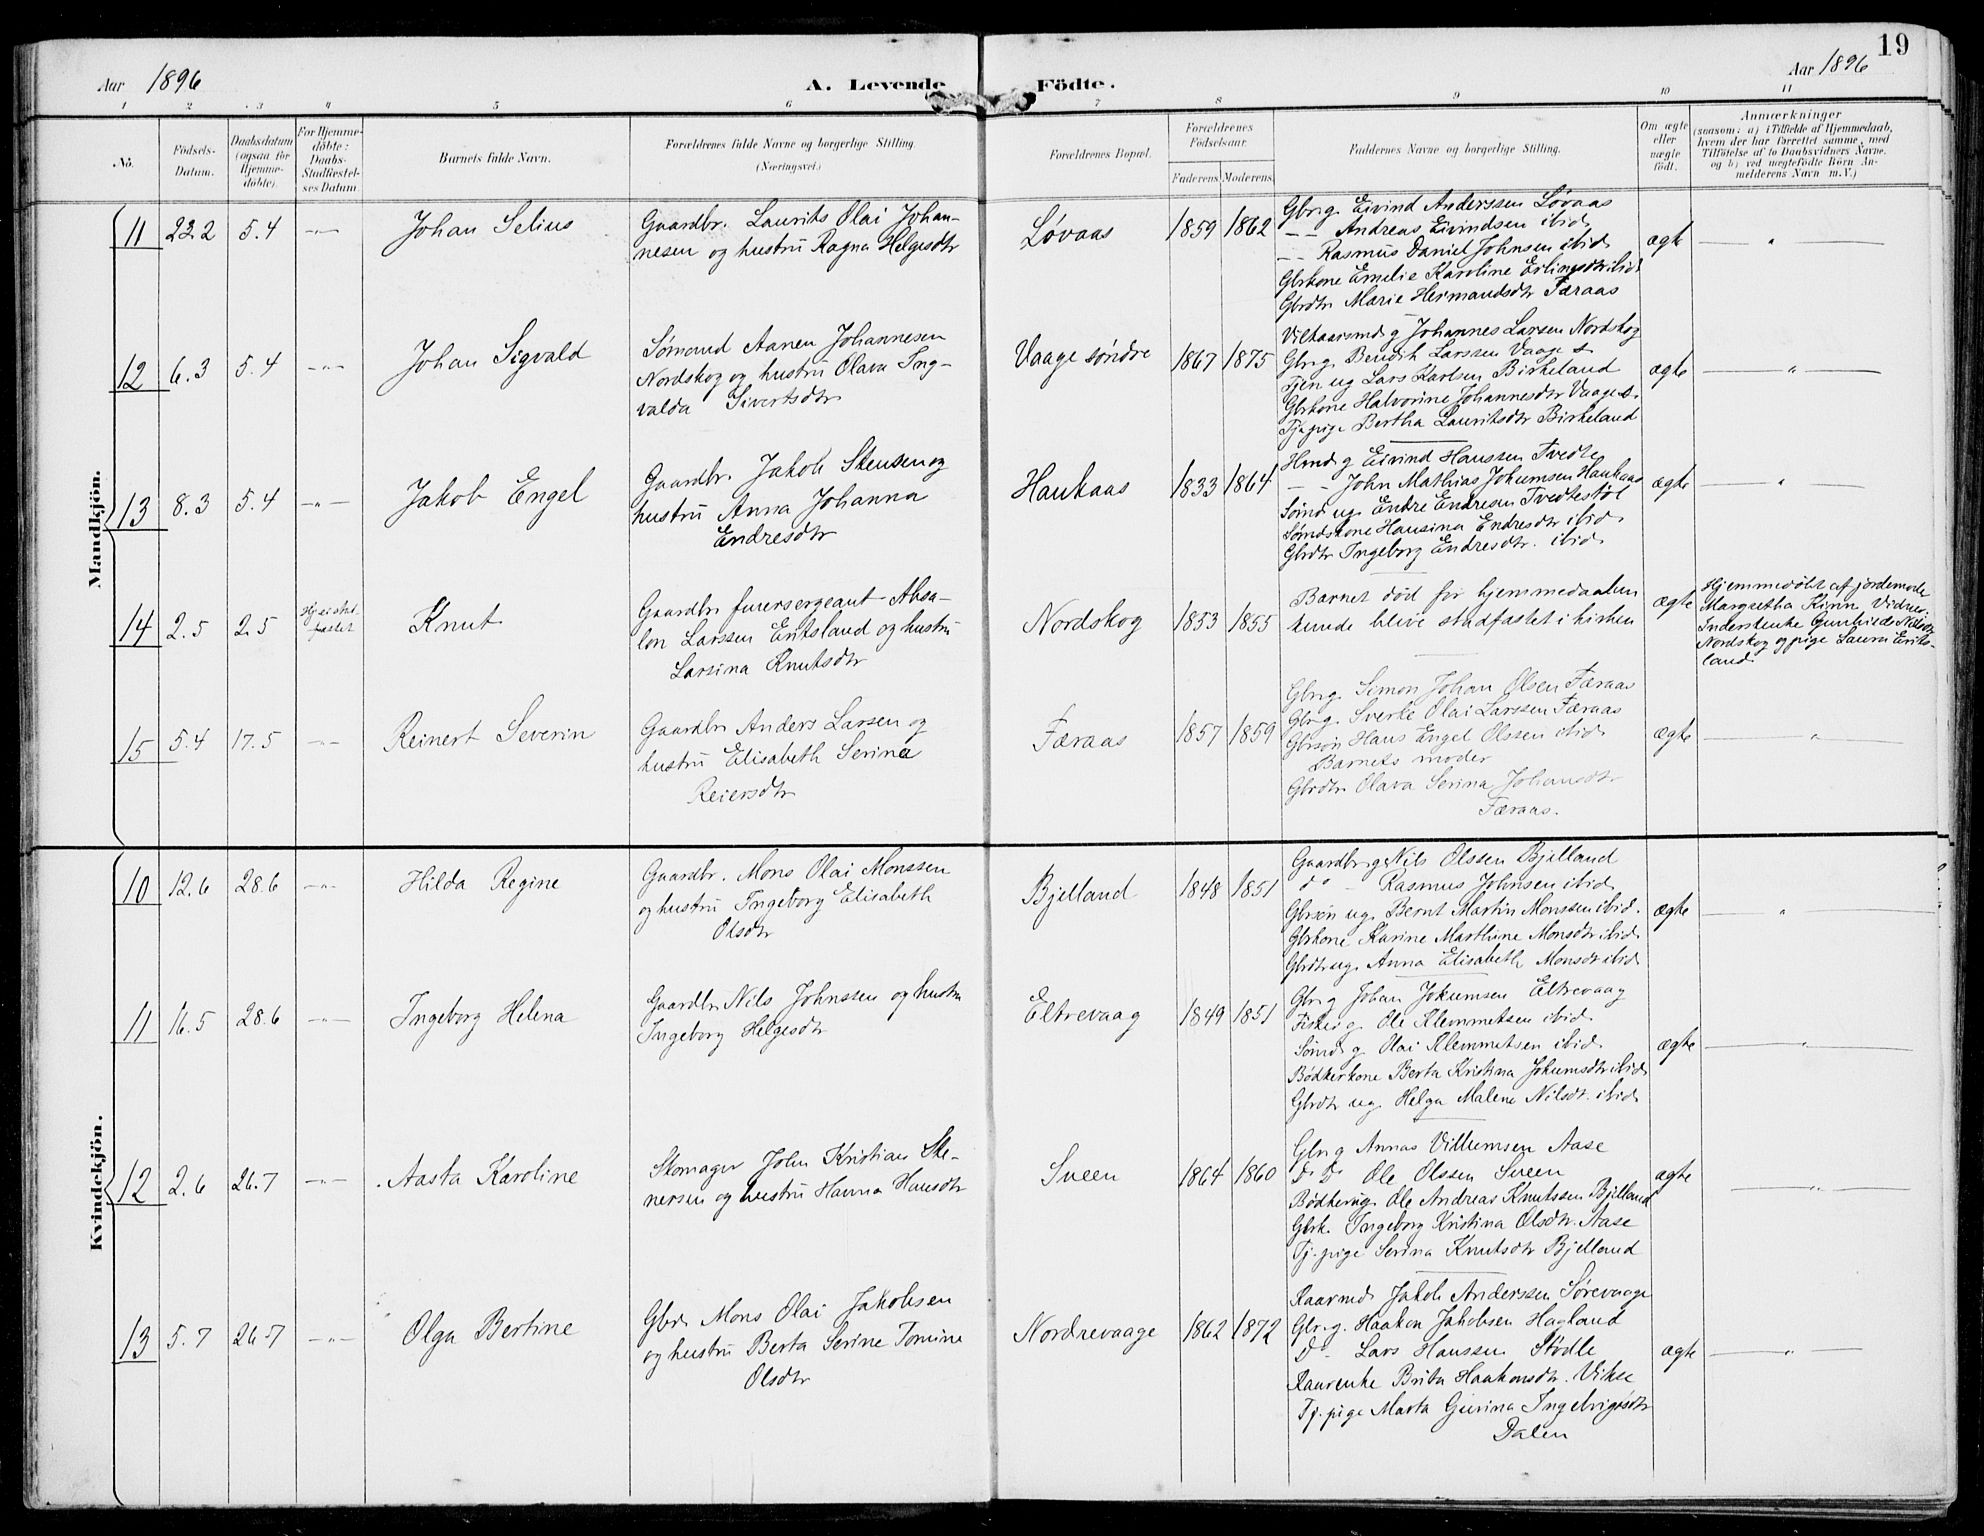 19
Aar 1896
A. Levende Födte.
Aar 1896
1 2 3 4 5 6 7 8 9 10 11
No.
Födsels-
Datum.
Daabsdatum
(ogsaa for
Hjemme-
döbte).
For Hjemme-
döbte:
Daabs-
Stadfæstel-
ses Datum.
Barnets fulde Navn.
Forældrenes fulde Navne og borgerlige Stilling.
(Næringsvei.)
Forældrenes Bopæl.
Forældrenes
Födselsaar.
Faderens. Moderens.
Faddernes Navne og borgerlige Stilling.
Om ægte
eller
uægte
födt.
Anmærkninger
(saasom: a) i Tilfælde af Hjemmedaab,
hvem der har forrettet samme, med
Tilföielse af to Daabsvidners Navne,
og b) ved uægtefödte Börn An-
melderens Navn m. V.)
Mandkjön.
11
22.2
5.4
-"-
Johan Selius
Gaardbr. Laurits Olai Johan-
nesen og hustru Ragna Helgesdtr
Løvaas
1859
1862
Gbrg. Eivind Anderssen Løvaas
- - Andreas Eivindsen ibid.
- - Rasmus Daniel Johnsen ibid.
Gbrkone Emelie Karoline Erlingsdtr ibid
Gbrdtr Marie Hermandsdtr Færaas
ægte
— " —
12
6.3
5.4
-"-
Johan Sigvald
Sømand Aanen Johannesen
Nordskog og hustru Olava Ing-
valda Sivertsdtr
Vaage søndre
1867
1875
Vilkaarsmd g Johannes Larsen Nordskog
Gbrg. Bendik Larssen Vaage s.
Tjen ug Lars Karlsen Birkeland
Gbrkone Halvorine Johannesdtr Vaage s.
Tj. pige Bertha Lauritsdtr Birkeland
ægte
— " —
13
8.3
5.4
-"-
Jakob Engel
Gaardbr. Jakob Stensen og
hustru Anna Johanna
Endresdtr
Haukaas
1833
1864
Hmd g Eivind Hanssen Tvedte
- - John Mathias Johumsen Haukaas
Sømd ug Endre Endresen Tvedtestøl
Sømdskone Hansina Endresdtr ibid.
Gbrdtr Ingeborg Endresdtr. ibid.
ægte
— " —
14
2.5
2.5
Knut
Gaardbr furersergeant Absa-
lon Larssen Eritsland og hustru
Larsina Knutsdtr
Nordskog
1853
1855
Barnet død før hjemmedaaben
kunde blive stadfæstet i kirken
ægte
Hjemmedøbt af jordemode
Margretha Kinn Vidner:
Inderstenke Gunhild Nilsdtr
Nordskog og pige Laura Erits-
land.
15
5.4
17.5
-"-
Reinert Severin
Gaardbr Anders Larsen og
hustru Elisabeth Serina
Reiersdtr
Færaas
1857
1859
Gbrg. Simon Johan Olsen Færaas
Gbrg. Sverke Olai Larssen Færaas
Gbrsøn Hans Engel Olssen ibid.
Barnets moder
Gbrdtr Olava Serina Johansdtr
Færaas.
ægte
— " —
Kvindekjön.
10
12.6
28.6
-"-
Hilda Regine
Gaardbr. Mons Olai Monssen
og hustru Ingeborg Elisabeth
Olsdtr
Bjelland
1848
1851
Gaardbr g Nils Olssen Bjelland
do - Rasmus Johnsen ibid.
Gbrsøn ug. Bernt Martin Monssen ibid.
Gbrkone Karine Marthine Monsdtr ibid.
Gbrdtr ug. Anna Elisabeth Monsdt ibid.
ægte
— " —
11
16.5
28.6
-"-
Ingeborg Helena
Gaardbr. Nils Johnssen og hustru
Ingeborg Helgesdtr
Eltrevaag
1849
1851
Gbrg Johan Jokumsen Eltrevaag
Fisker g. Ole Klemmetsen ibid.
Sømd g Olai Klemmetsen ibid.
Bødkerkone Berta Kristina Jokumsdtr ibid.
Gbrdtr ug. Helga Malene Nilsdt. ibid.
ægte
— " —
12
2.6
26.7
-"-
Aasta Karoline
Skomager John Kristian Ste-
nersen og hustru Hanna Hansdtr
Sveen
1864
1860
Gbrg Annas Villumsen Aase
D. D. Ole Olssen Sveen
Bødker ug. Ole Andreas Knutssen Bjelland
Gbrk. Ingeborg Kristina Olsdtr. Aase
Tj. pige Serina Knutsdtr Bjelland
ægte
— " —
13
5.7
26.7
-"-
Olga Bertine
Gbr. Mons Olai Jakobsen
og hustru Berta Serine Tomine
Olsdtr
Nordrevaage
1862
1872
Kaarmd. Jakob Anderssen Sørevaage
Gbr. g. Haakon Jakobsen Hagland
D - Lars Hanssen Stødle
Kaarenke Brita Haakonsdtr. Vikse
Tj. pige Marta Gurina Ingebrigtsdtr
Dalen
ægte
— " —